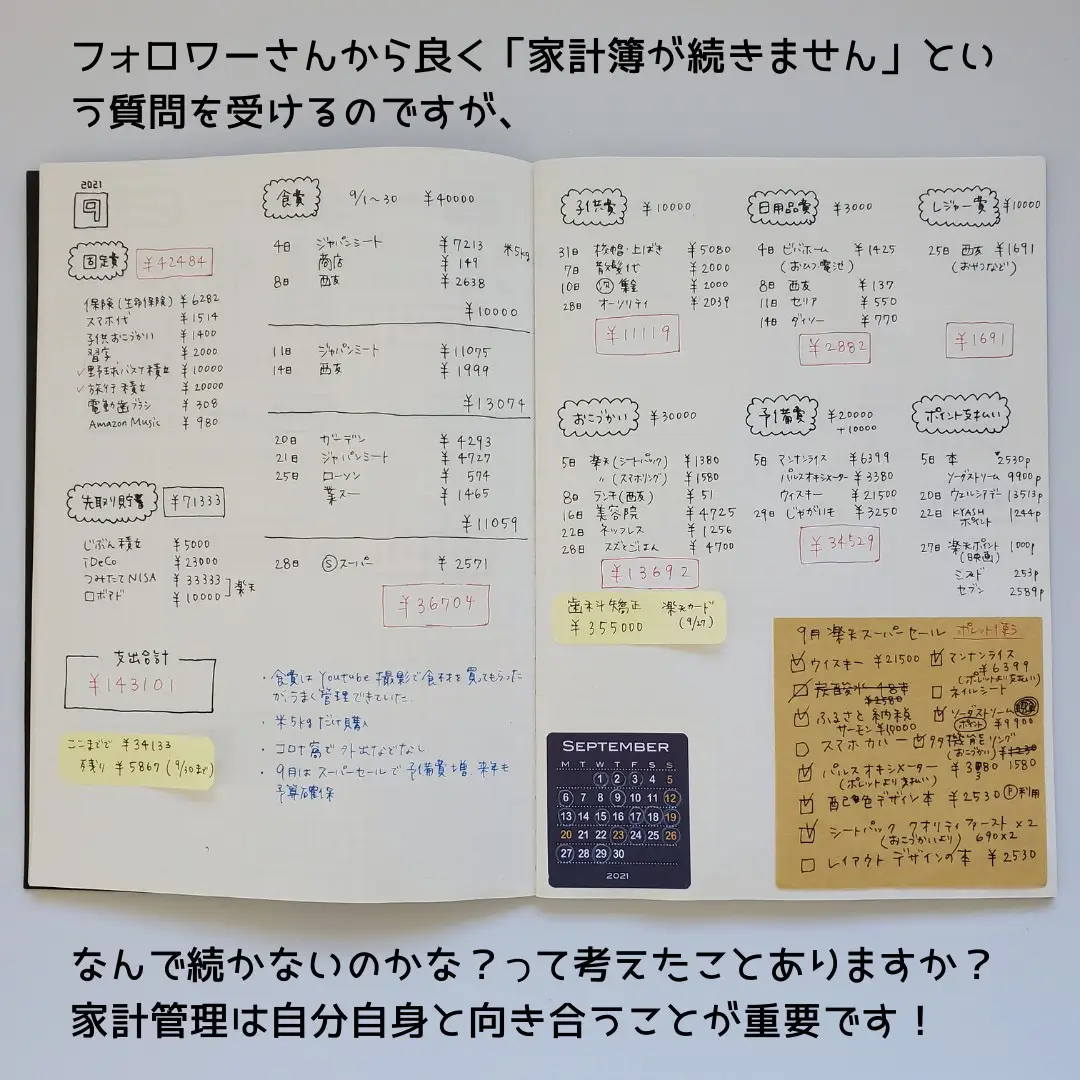 フォロワーさんから良く「家計簿が続きません」とい
う質問を受けるのですが、
2021
9
固定費 ¥42484
保険(生命保険) ¥6282
スマホ代 ¥1514
子供おこづかい ¥1400
習字 ¥2000
✓野球バスケ積立 ¥10000
✓旅行積立 ¥20000
電動歯ブラシ ¥308
Amazon Music ¥980
先取り貯蓄 ¥71333
じぶん積立 ¥5000
iDeCo ¥23000
つみたてNISA ¥33333
ロボアド ¥10000
楽天
支出合計
¥143101
ここまでで ¥34133
残り ¥5867(9/30まで)
食費 9/1〜30 ¥40000
4日 ジャパンミート ¥7213 米5kg
商店 ¥149
8日 西友 ¥2638
¥10000
11日 ジャパンミート ¥11075
14日 西友 ¥1999
¥13074
20日 ガーデン ¥4293
21日 ジャパンミート ¥4727
25日 ローソン ¥574
業スー ¥1465
¥11059
28日 Ⓢスーパー ¥2571
¥36704
・食費はYoutube撮影で食材を買ってもらった
が、うまく管理できていた。
・米5kgだけ購入
・コロナ禍で外出などなし
・9月はスーパーセールで予備費増 来年も
予算確保
子供費 ¥10000
31日 校帽・上ばき ¥5080
7日 散髪代 ¥2000
10日 集金 ¥2000
28日 オーソリティ ¥2039
¥11119
日用品費 ¥3000
4日 ビバホーム ¥1425
(おひつ・電池)
8日 西友 ¥137
11日 セリア ¥550
14日 ダイソー ¥770
¥2882
レジャー費 ¥10000
25日 西友 ¥1691
(おやつなど)
¥1691
おこづかい ¥30000
5日 楽天(シートパック) ¥1380
〃 (スマホリング) ¥1580
8日 ランチ(西友) ¥51
16日 美容院 ¥4725
22日 ネックレス ¥1256
28日 スズとごはん ¥4700
¥13692
歯科矯正 楽天カード
¥355000 (9/27)
予備費 ¥20000
+10000
5日 マンナンライス ¥6399
パルスオキシメーター ¥3380
ウィスキー ¥21500
29日 じゃがいも ¥3250
¥34529
ポイント支払い
5日 本 2530p
ソーダストリーム 9900p
20日 ウェルシアデー 13513p
22日 KYASH 1244p
ポイント
27日 楽天ポイント 1000p
(映画)
253p
セブン 2589p
SEPTEMBER
M T W T F S S
1 2 3 4 5
6 7 8 9 10 11 12
13 14 15 16 17 18 19
20 21 22 23 24 25 26
27 28 29 30
2021
9月楽天スーパーセール ポレット使う
ウィスキー ¥21500
炭酸水 48本
¥2580
ふるさと納税
サーモン ¥10000
スマホカバー
パルスオキシメーター
(ポレットより支払い)
配色デザイン本 ¥2530 Ⓟ利用
シートパック クオリティファースト×2
(おこづかいより) 690×2
レイアウトデザインの本 ¥2530
マンナンライス
¥6399
(ポレットより支払い)
ネイルシート
ソーダストリーム
ポイント ¥9900
多機能リング
(おこづかい)
1580
なんで続かないのかな?って考えたことありますか?
家計管理は自分自身と向き合うことが重要です!